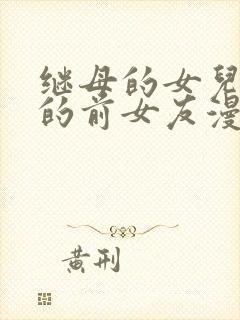 继母的女兒
的前女友漫
黄刑